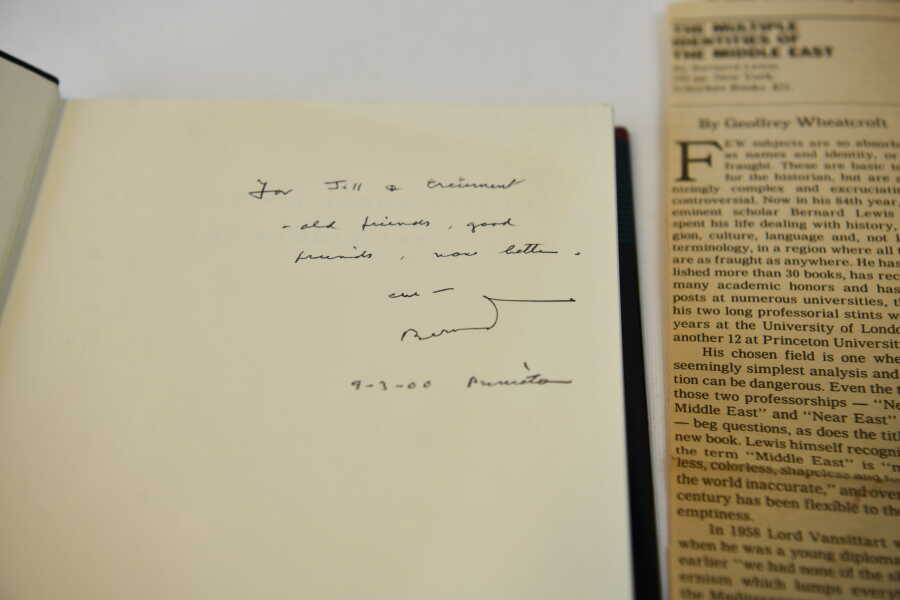 For Jill &
- old friends, good
friends, now better.
Bernard
9-3-00 Princeton
THE MULTIPLE
IDENTITIES OF
THE MIDDLE EAST
By Bernard Lewis.
New York:
Schocken Books
By Geoffrey Wheatcroft
FEW subjects are so absorb
as names and identity, or
fraught. These are basic
for the historian, but are
mizingly complex and excruciatin
controversial. Now in his 84th year,
eminent scholar Bernard Lewis
spent his life dealing with history,
gion, culture, language and, not l
terminology, in a region where all
are as fraught as anywhere. He has
lished more than 30 books, has rec
many academic honors and has
posts at numerous universities, t
his two long professorial stints w
years at the University of Londo
another 12 at Princeton Universit
His chosen field is one whe
seemingly simplest analysis and
tion can be dangerous. Even the t
those two professorships — "Ne
Middle East" and "Near East"
— beg questions, as does the titl
new book. Lewis himself recogni
the term "Middle East" is "m
less, colorless, shapeless and for
the world inaccurate," and over
century has been flexible to the
emptiness.
In 1958 Lord Vansittart w
when he was a young diploma
earlier "we had none of the sl
ernism which lumps everyt
the Mediterranean